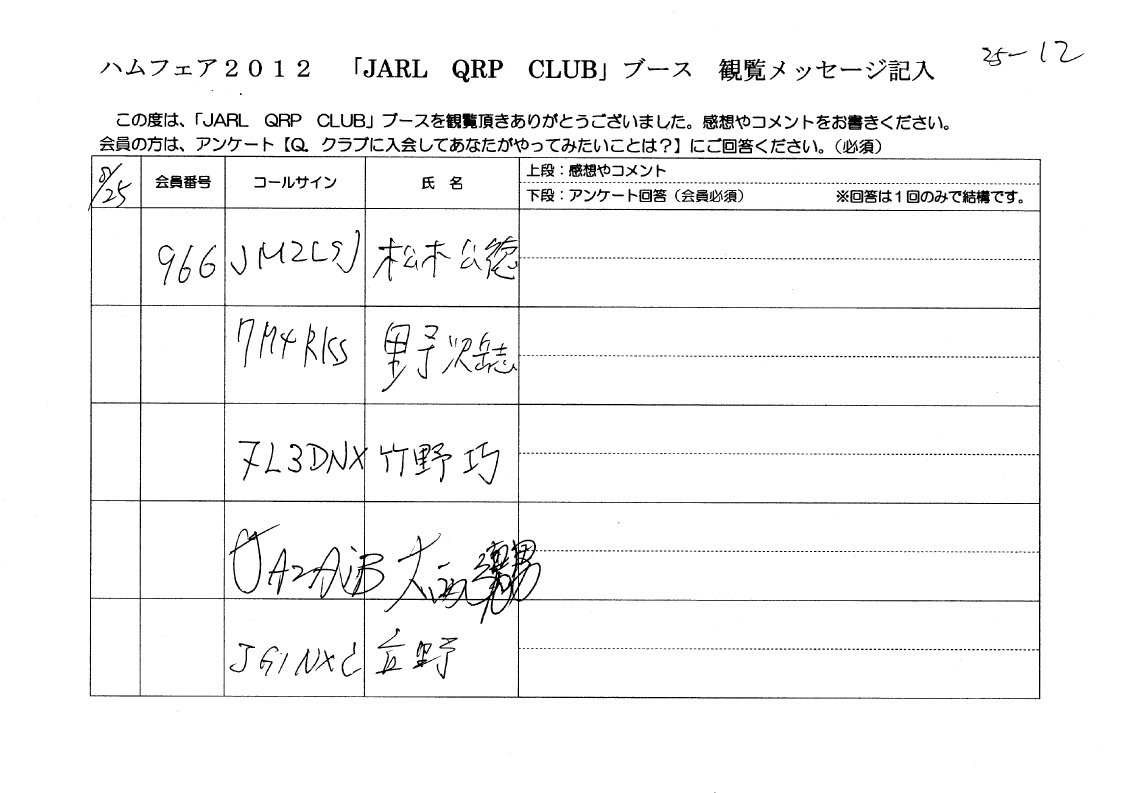 25-12
ハムフェア2012 「JARL QRP CLUB」ブース 観覧メッセージ記入
この度は、「JARL QRP CLUB」ブースを観覧頂きありがとうございました。感想やコメントをお書きください。
会員の方は、アンケート【Q. クラブに入会してあなたがやってみたいことは?】にご回答ください。(必須)
8/25 会員番号 コールサイン 氏 名 上段:感想やコメント
下段:アンケート回答(会員必須) ※回答は1回のみで結構です。
966 JM2LSJ 松本公徳
7M4RKS
7L3DNX 竹野 巧
大西
JG1NXC